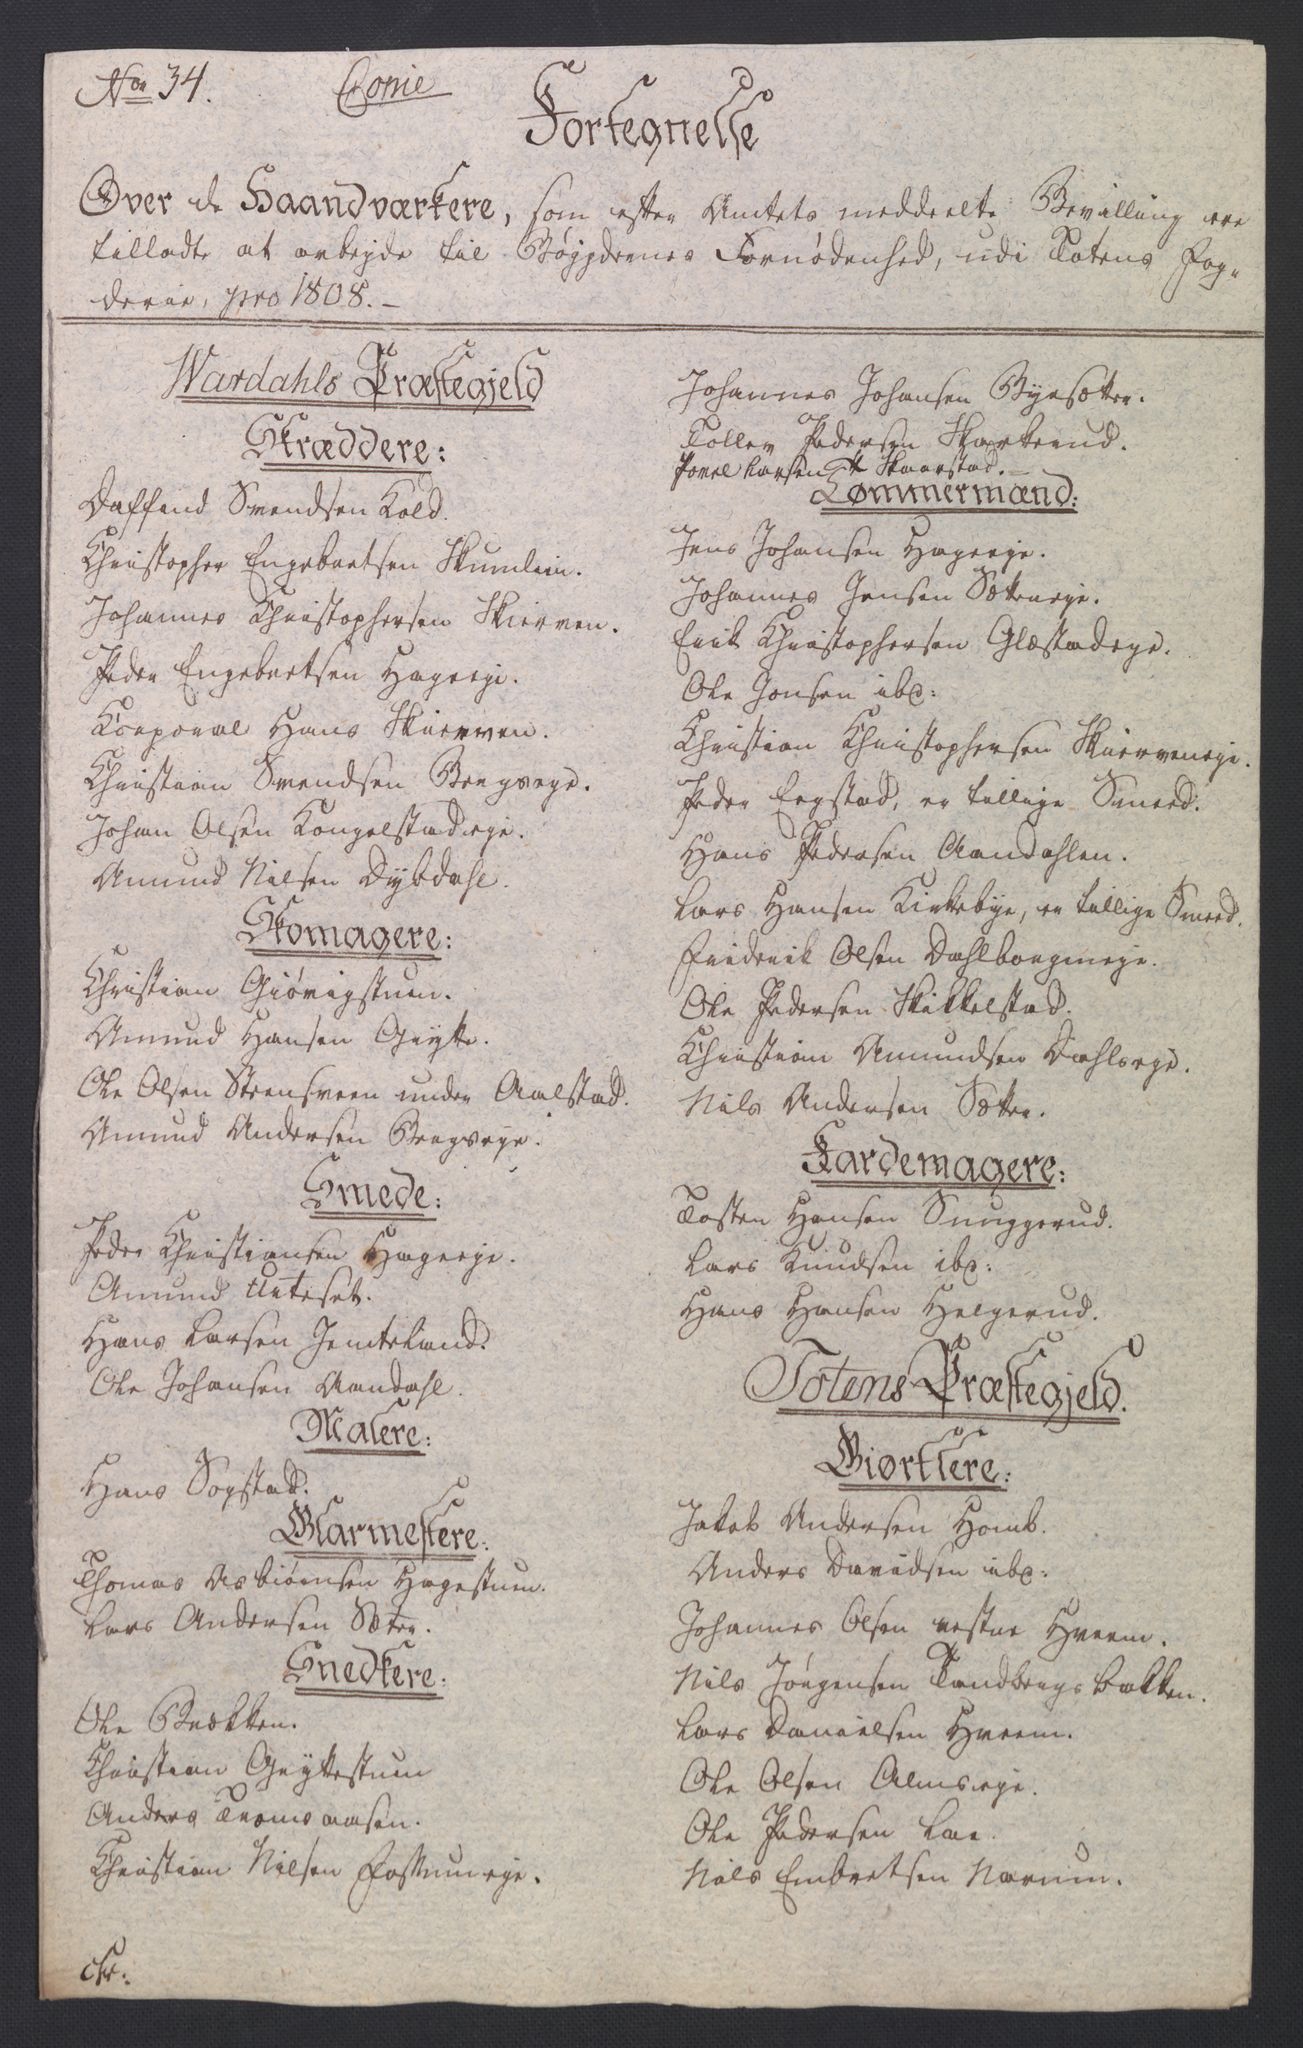 No 34. Copie
Fortegnelse
Over de Haandværkere, som efter Amtets meddeelte Bevilling ere
tilladte at arbejde til Bøygdernes Fornødenhed, udi Totens Fog-
derie, pro 1808.
Wardahls Præstegjeld
Skræddere:
Daffind Svendsen Kold.
Christopher Engebretsen Skumlien.
Johannes Christophersen Skierven.
Peder Engebretsen Hageeje.
Corporal Hans Skierven.
Christian Svendsen Bergseye.
Johan Olsen Kongelstadeje.
Amund Nilsen Dybdahl.
Skomagere:
Christian Giøvigstuen.
Amund Hansen Grytte.
Ole Olsen Steensveen under Aalstad.
Amund Andersen Bergseye.
Smede:
Peder Christiansen Hageeje.
Amund
Hans Larsen Jemteland.
Ole Johansen Aandahl.
Malere:
Hans Sogstad.
Glarmestere:
Thomas Asbiørnsen Hagestuen.
Lars Andersen Sæter.
Snedkere:
Ole Brækken.
Christian Gryttestuen
Anders Tromsaasen.
Christian Nilsen Fossumeje.
Johannes Johansen Byesætter.
Tollev Pedersen Skarterud.
Povel Larsen Skaarstad.
Tømmermænd:
Jens Johansen Hageeje.
Johannes Jensen Sætereje.
Erik Christophersen Glæstadeje.
Ole Jonsen ibd:
Christian Christophersen Skierveneje.
Peder Eegstad, er tillige Smeed.
Hans Pedersen Aandahlen.
Lars Hansen Kirkebye, er tillige Smeed.
Friderik Olsen Dahlborgmeje.
Ole Pedersen Skikkelstad.
Christian Amundsen Dahlseje.
Nils Andersen Sætter.
Kardemagere:
Tosten Hansen Snuggerud.
Lars Knudsen ibd:
Hans Hansen Helgerud.
Totens Præstegjeld.
Giørtlere:
Jakob Andersen Homb.
Anders Davidsen ibd:
Johannes Olsen vestre Hveem.
Nils Jørgensen Tandbergs bakken.
Lars Danielsen Hveem.
Ole Olsen Almseje.
Ole Pedersen Lae.
Nils Embretsen Narum.